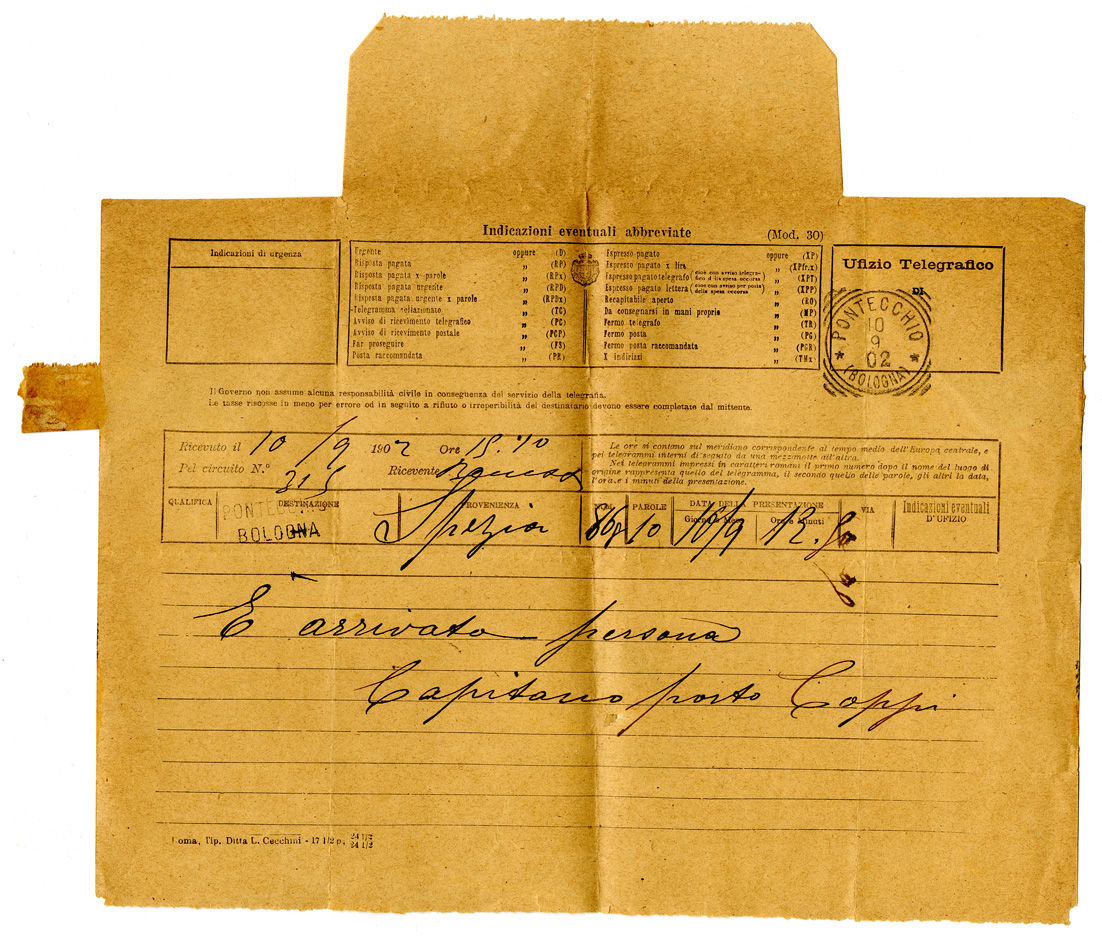 Indicazioni eventuali abbreviate (Mod. 30)
Indicazioni di urgenza
Urgente oppure (D)
Risposta pagata „ (RP)
Risposta pagata x parole „ (RPx)
Risposta pagata urgente „ (RPD)
Risposta pagata urgente x parole „ (RPDx)
Telegramma collazionato „ (TC)
Avviso di ricevimento telegrafico „ (PC)
Avviso di ricevimento postale „ (PCP)
Far proseguire „ (FS)
Posta raccomandata „ (PR)
Espresso pagato oppure (XP)
Espresso pagato x lire „ (XPfr.x)
Espresso pagato telegrafo (cioè con avviso telegrafico d lla spesa occorsa) „ (XPT)
Espresso pagato lettera (cioè con avviso per posta della spesa occorsa) „ (XPP)
Recapitabile aperto „ (RO)
Da consegnarsi in mani proprie „ (MP)
Fermo telegrafo „ (TR)
Fermo posta „ (PG)
Fermo posta raccomandata „ (PGR)
X indirizzi „ (TMx)
Ufizio Telegrafico
DI
PONTECCHIO
10
9
02
(BOLOGNA)
Il Governo non assume alcuna responsabilità civile in conseguenza del servizio della telegrafia.
Le tasse riscosse in meno per errore od in seguito a rifiuto o irreperibilità del destinatario devono essere completate dal mittente.
Ricevuto il 10/9 1902 Ore 15.40
Pel circuito N.° 315 Ricevente
Le ore si contano sul meridiano corrispondente al tempo medio dell'Europa centrale, e
pei telegrammi interni di seguito da una mezzanotte all'altra.
Nei telegrammi impressi in caratteri romani il primo numero dopo il nome del luogo di
origine rappresenta quello del telegramma, il secondo quello delle parole, gli altri la data,
l'ora e i minuti della presentazione.
QUALIFICA DESTINAZIONE PROVENIENZA NUM. PAROLE DATA DELLA PRESENTAZIONE VIA Indicazioni eventuali
Giorno e Mese Ore e Minuti D'UFIZIO
PONTECCHIO
BOLOGNA Spezia 10 10/9 12.50
E arrivata persona
Capitano porto Coppi
Roma, Tip. Ditta L. Cecchini - 17 1/2 p, 24 1/2
24 1/2